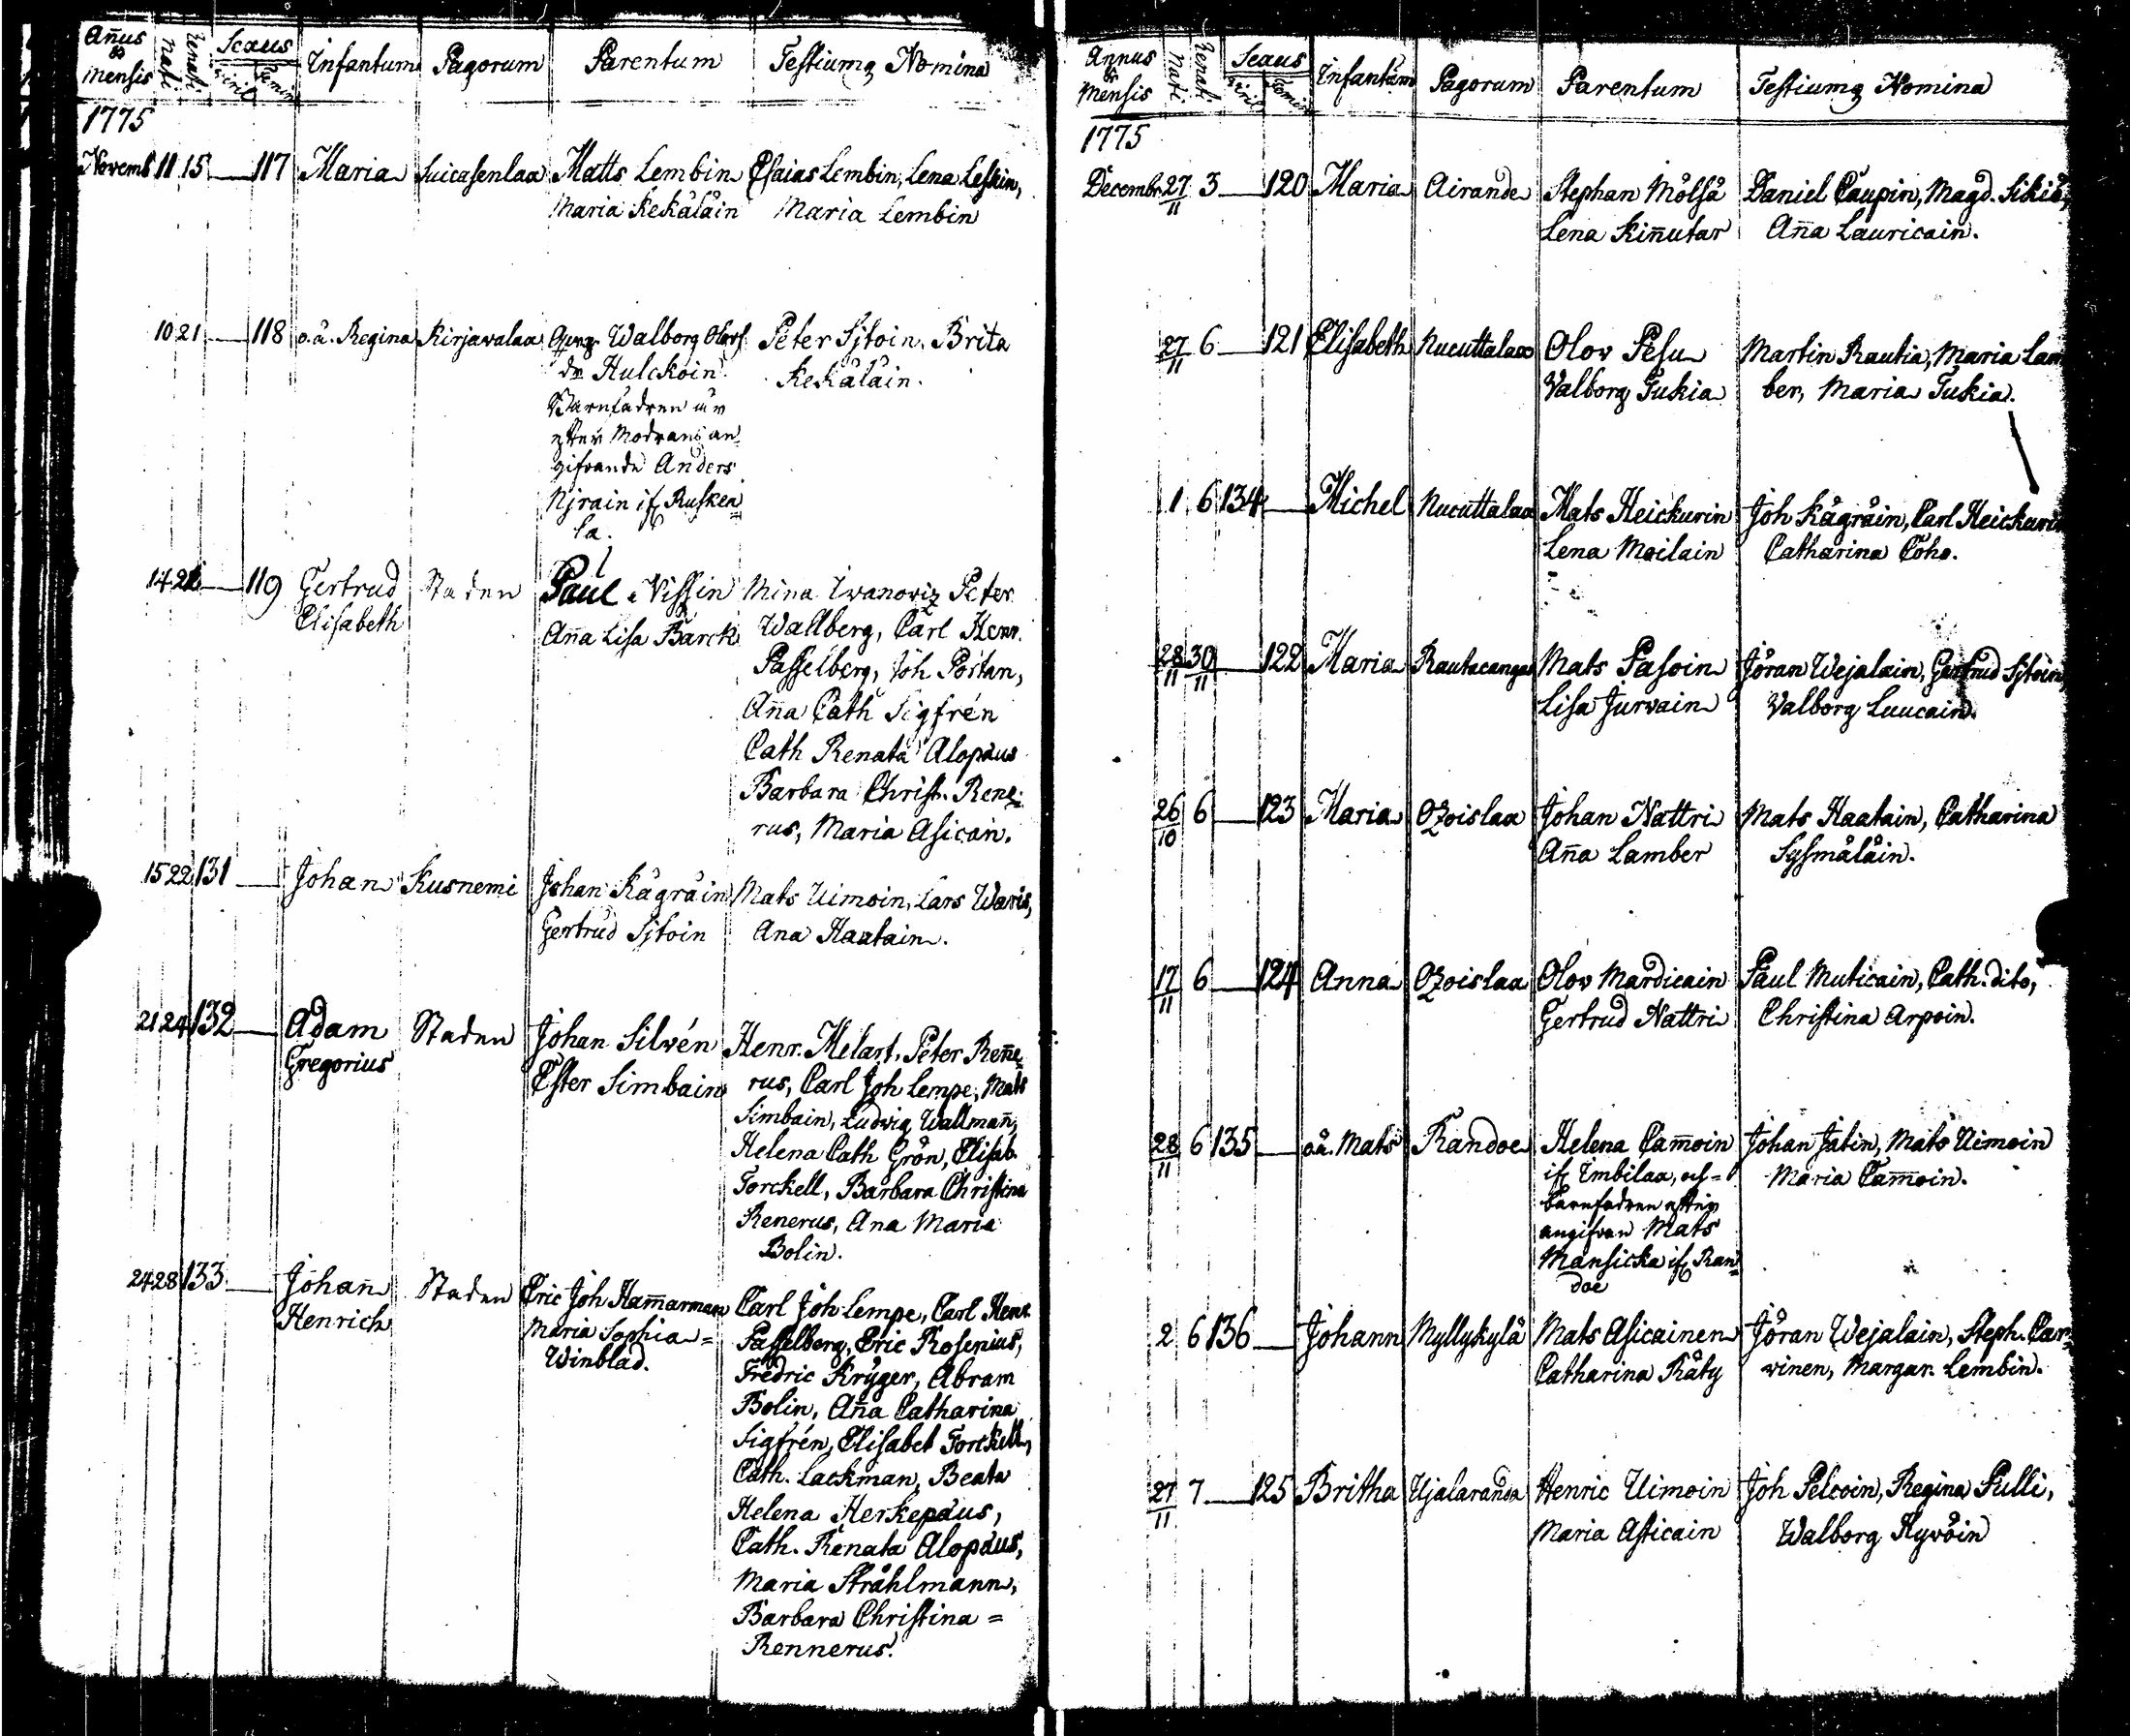 Añus & Mensis Nati Renati Sexus Viril Femin Infantum Pagorum Parentum Testiumq Nomina
1775
Novemb 11 15 — 117 Maria Suicasenlax Matts Lembin Esaias Lembin, Lena Leskin,
Maria Kekäläin Maria Lembin
10 21 — 118 o.ä. Regina Kirjavalax Walborg Olofs Peter Sjtoin, Brita
dr Hulckoin Kekäläin.
Barnfadren är
efter Modrens an
gifvande Anders
Njrain if. Ruskea
la.
14 21 — 119 Gertrud Staden Paul Nissin Mina Iwanoviz Peter
Elisabeth Aña Lisa Barck Wallberg, Carl Henr.
Passelberg, Joh Portan,
Aña Cath Sigfrén
Cath Renata Alopæus
Barbara Christ. Rene
rus, Maria Asicain.
15 22 131 — Johan Kusnemi Johan Kägräin Mats Uimoin, Lars Waris,
Gertrud Sjtoin Ana Haatain.
21 24 132 — Adam Staden Johan Silvén Henr. Melart, Peter Reñe
Gregorius Ester Simbain rus, Carl Joh Lempe, Mats
Simbain, Ludvig Wallmañ,
Helena Cath Grön, Elisab.
Torckell, Barbara Christina
Renerus, Ana Maria
Bolin.
24 28 133 — Johan Staden Eric Joh Ham̄arman Carl Joh Lempe, Carl Henr.
Henrich Maria Sophia = Passelberg, Eric Rosenius,
Winblad. Fredric Krÿger, Abram
Bolin, Aña Catharina
Sigfrén, Elisabet Torckell,
Cath. Lackman, Beata
Helena Herkepæus,
Cath. Renata Alopæus,
Maria Stråhlmann,
Barbara Christina =
Rennerus.
Annus & Mensis Nati Renati Sexus Viril Femin Infantum Pagorum Parentum Testiumq Nomina
1775
Decembr 27/11 3 — 120 Maria Airande Stephan Mölsä Daniel Caupin, Magd. Sikiö,
Lena Kiñutar Aña Lauricain.
27/11 6 — 121 Elisabeth Nucuttalax Olov Pesu Martin Rautia, Maria Lam
Valborg Tukia ber, Maria Tukia.
1 6 134 — Michel Nucuttalax Mats Heickurin Joh Kägräin, Carl Heickurin
Lena Moilain Catharina Coho.
28/11 30/11 — 122 Maria Rautacangas Mats Pasoin Jöran Wejalain, Gertrud Sjtoin,
Lisa Jurvain Valborg Luucain.
26/10 6 — 123 Maria Ozoislax Johan Nattri Mats Haatain, Catharina
Aña Lamber Sysmäläin.
17/11 6 — 124 Anna Ozoislax Olov Mardicain Paul Muticain, Cath. dito,
Gertrud Nattri Christina Arpoin.
28/11 6 135 — o.ä. Mats Randoe Helena Cam̄oin Johan Jatin, Mats Uimoin
if. Imbilax, och = Maria Cam̄oin.
barnfadren efter
angifvan Mats
Mansicka if. Ran
doe
2 6 136 — Johann Myllykylä Mats Asicainen Jöran Wejalain, Steph. Car
Catharina Räty vinen, Margar. Lembin.
27/11 7 — 125 Britha Ujalaranda Henric Uimoin Joh Pelcoin, Regina Pulli,
Maria Asticain Walborg Hyvöin